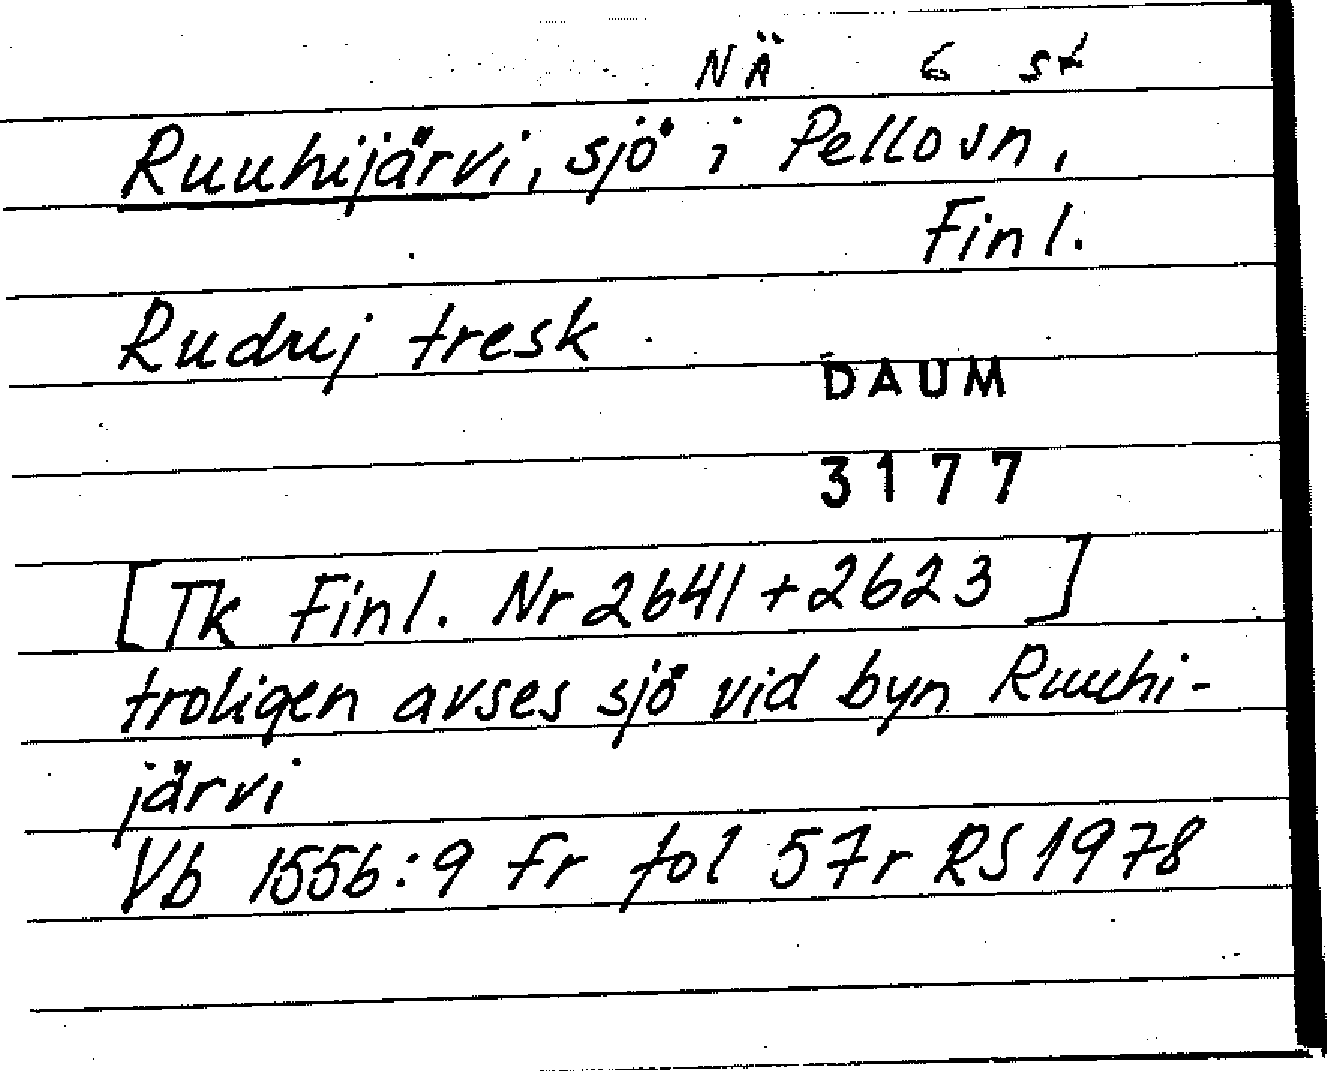 NÄ 6 st
Ruuhijärvi, sjö i Pello sn,
Finl.
Rudruj tresk
DAUM
3177
[Tk Finl. Nr 2641+2623]
troligen avses sjö vid byn Ruuhi-
järvi
Vb 1556:9 Fr fol 57r RS 1978